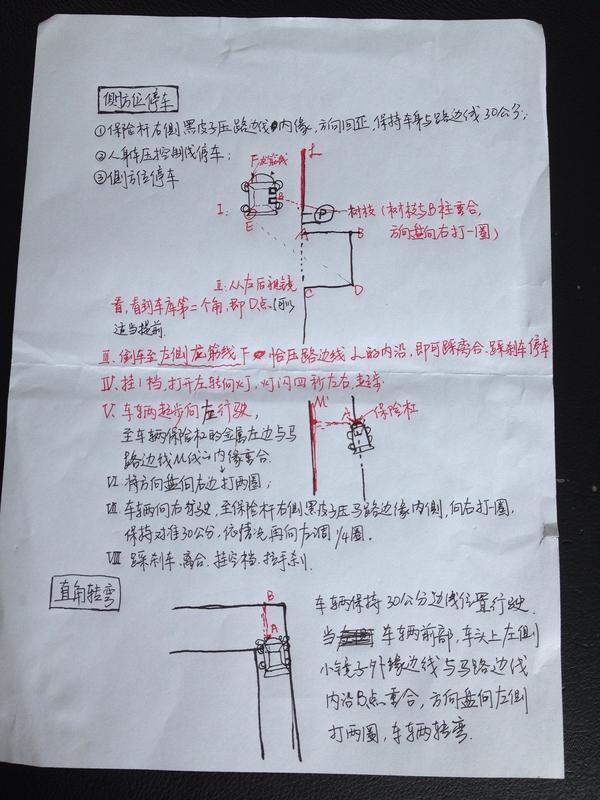 侧方位停车
①保险杆右侧黑皮子压路边线内缘,方向回正,保持车身与路边线30公分;
②人身体压控制线停车;
③侧方位停车
F龙筋线
L
B
I:
P
树枝(树枝与B柱重合,
方向盘向右打一圈)
E
A
B
II:从左后视镜
C
D
看,看到车库第二个角,即D点.(可以
适当提前.
III.倒车至左侧龙筋线F恰压路边线L的内沿,即可踩离合.踩刹车停车
IV.挂1档,打开左转向灯,灯闪四秒左右.起步
V.车辆起步向左行驶,
至车辆保险杠的金属左边与马
路边线M线之内缘重合.
M
保险杠
VI.将方向盘向右边打两圈;
VII.车辆向右驾驶,至保险杆右侧黑皮子压马路边缘内侧,向右打一圈,
保持对准30公分,依情况再向左调1/4圈.
VIII 踩刹车.离合.挂空档.拉手刹.
直角转弯
B
A
车辆保持30公分边线位置行驶.
当车辆前部,车头上左侧
小镜子外缘边线与马路边线
内沿B点重合,方向盘向左侧
打两圈,车辆转弯.